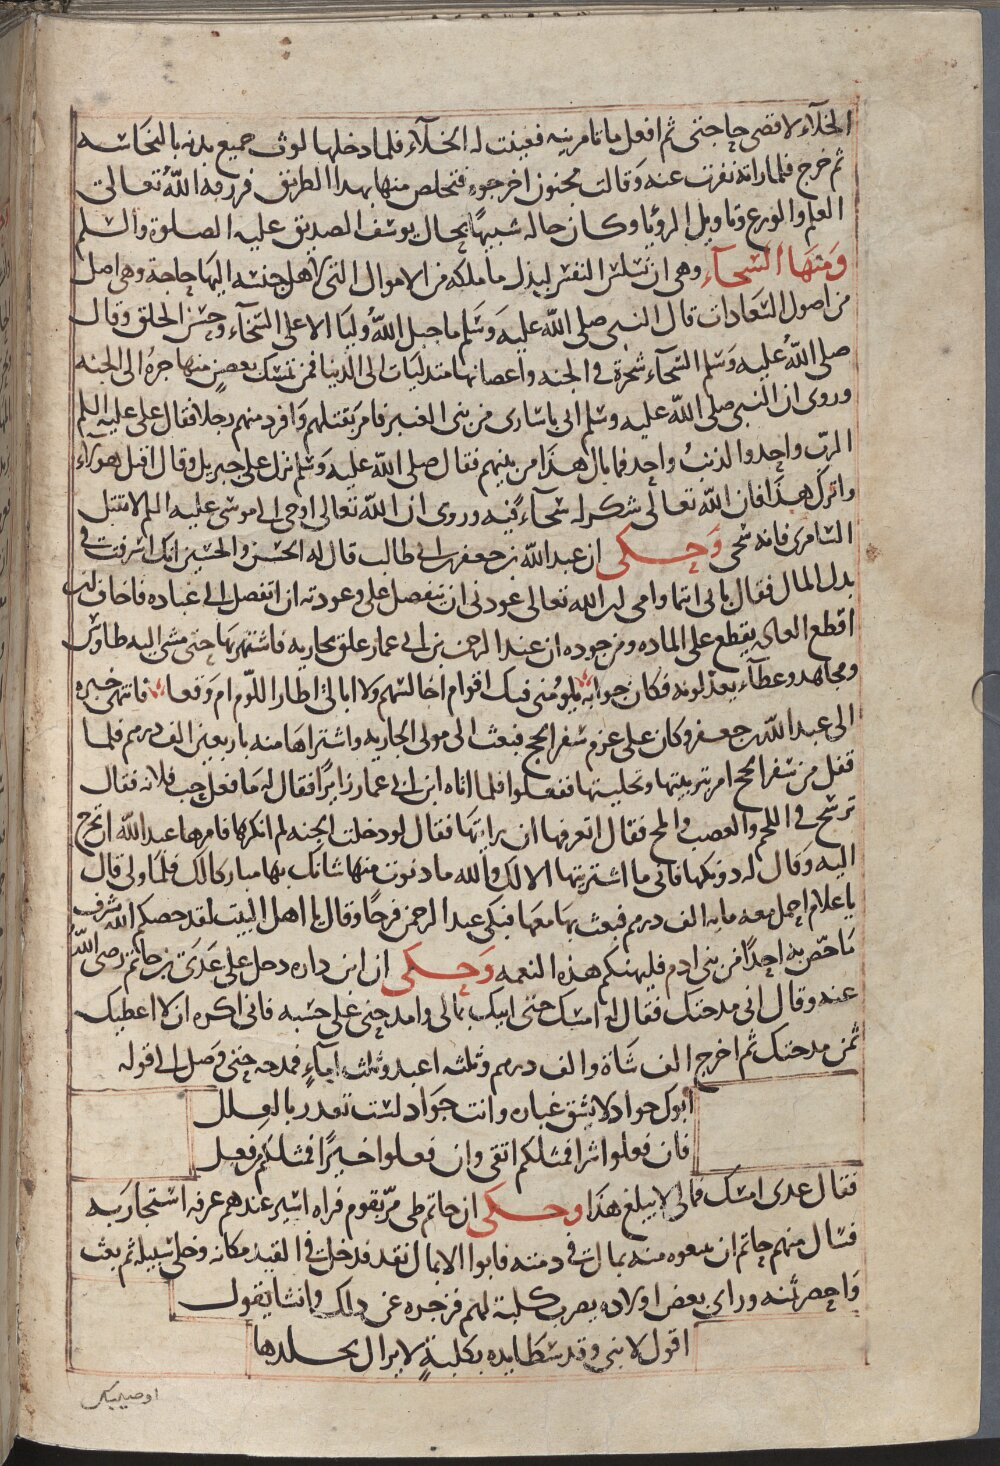 الخلاء لاقضى حاجتى ثم افعل ما تامرينه فعينت له الخلآء فلما دخلها لوث جميع بدنه بالنجاسه
ثم خرج فلما راته نفرت عنه وقالت مجنون اخرجوه فتخلص منها بهذا الطريق فرزقه الله تعالى
العلم والورع وتاويل الرؤيا وكان حاله شبيها بحال يوسف الصديق عليه الصلوة والسلم
ومنها السخآء وهى ان تسلس النفس لبذل ما ملكه من الاموال التى لاهل جنسه اليها حاجة وهى اصل
من اصول السعادات قال النبى صلى الله عليه وسلم ما جبل الله وليا الا على السخآء وحسن الخلق وقال
صلى الله عليه وسلم السخآء شجرة فى الجنه واغصانها متدليات الى الدنيا فمن تمسك بغصن منها جره الى الجنه
وروى ان النبى صلى الله عليه وسلم اتى باسارى من بنى العنبر فامر بقتلهم وافرد منهم رجلا فقال على عليه السلم
الرب واحد والذنب واحد فما بال هذا من بينهم فقال صلى الله عليه وسلم نزل على جبريل وقال اقتل هؤلآء
واترك هذا فان الله تعالى شكر له سخآء فيه وروى ان الله تعالى اوحى الى موسى عليه السلم لا تقتل
السامرى فانه سخى وحكى ان عبد الله بن جعفر بن ابى طالب قال له الحسن والحسين انك اسرفت فى
بذل المال فقال بابى انتما وامى ان الله تعالى عودنى ان يتفضل على وعودته ان اتفضل الى عباده فاخاف ان
اقطع العاده يقطع على الماده ومن جوده ان عبد الرحمن بن ابى عمار علق بجاريه فاشتهر بها حتى مشى اليه طاوس
ومجاهد وعطآء يعذلونه فكان جوابه يلومنى فيك اقوام اجالسهم ولا ابالى اطار اللوم ام وقعا فانتهى خبره
الى عبد الله بن جعفر وكان على عزم سفر الحج فبعث الى مولى الجاريه واشتراها منه باربعين الف درهم فلما
قفل من سفر الحج امر بتزيينها وتحليتها ففعلوا فلما اتاه ابن ابى عمار زايرا فقال له ما فعل حب فلانه فقال
ترسخ فى اللحم والعصب والمخ فقال اتعرفها ان رايتها فقال لو دخلت الجنه لم انكرها فامرها عبد الله ان تخرج
اليه وقال له دونكها فانى ما اشتريتها الا لك والله ما دنوت منها شانك بها مباركا لك فلما ولى قال
يا غلام احمل معه مايه الف درهم فبعث بها معها فبكى عبد الرحمن فرحا وقال يا اهل البيت لقد خصكم الله بشرف
ما خص به احدا من بنى ادم فليهنكم هذه النعمه وحكى ان ابن داره دخل على عدى بن حاتم رضى الله
عنه وقال انى مدحتك فقال له امسك حتى انبيك بمالى وامدحنى على حسبه فانى اكره ان لا اعطيك
ثمن مدحتك ثم اخرج الف شاة والف درهم وثلثه اعبد وثلث امآء فمدحه حتى وصل الى قوله
ابوك جواد لا يشق غباره وانت جواد لست تعذر بالعلل
فان فعلوا شرا فمثلكم اتقى وان فعلوا خيرا فمثلكم فعل
فقال عدى امسك فمالى لا يبلغ هذا وحكى ان حاتم طى مر بقوم فراه اسير عندهم عرفه استجار به
فسال منهم حاتم ان يبيعوه منه بمال فى ذمته فابوا الا بمال نقد فدخل فى القيد مكانه وخلى سبيله ثم بعث
واحضر ثمنه وراى بعض اولاده يضرب كلبة لهم فزجره عن ذلك وانشا يقول
اقول لابنى وقد سطا بيده بكلبة لا يزال يجلدها
اوصيك